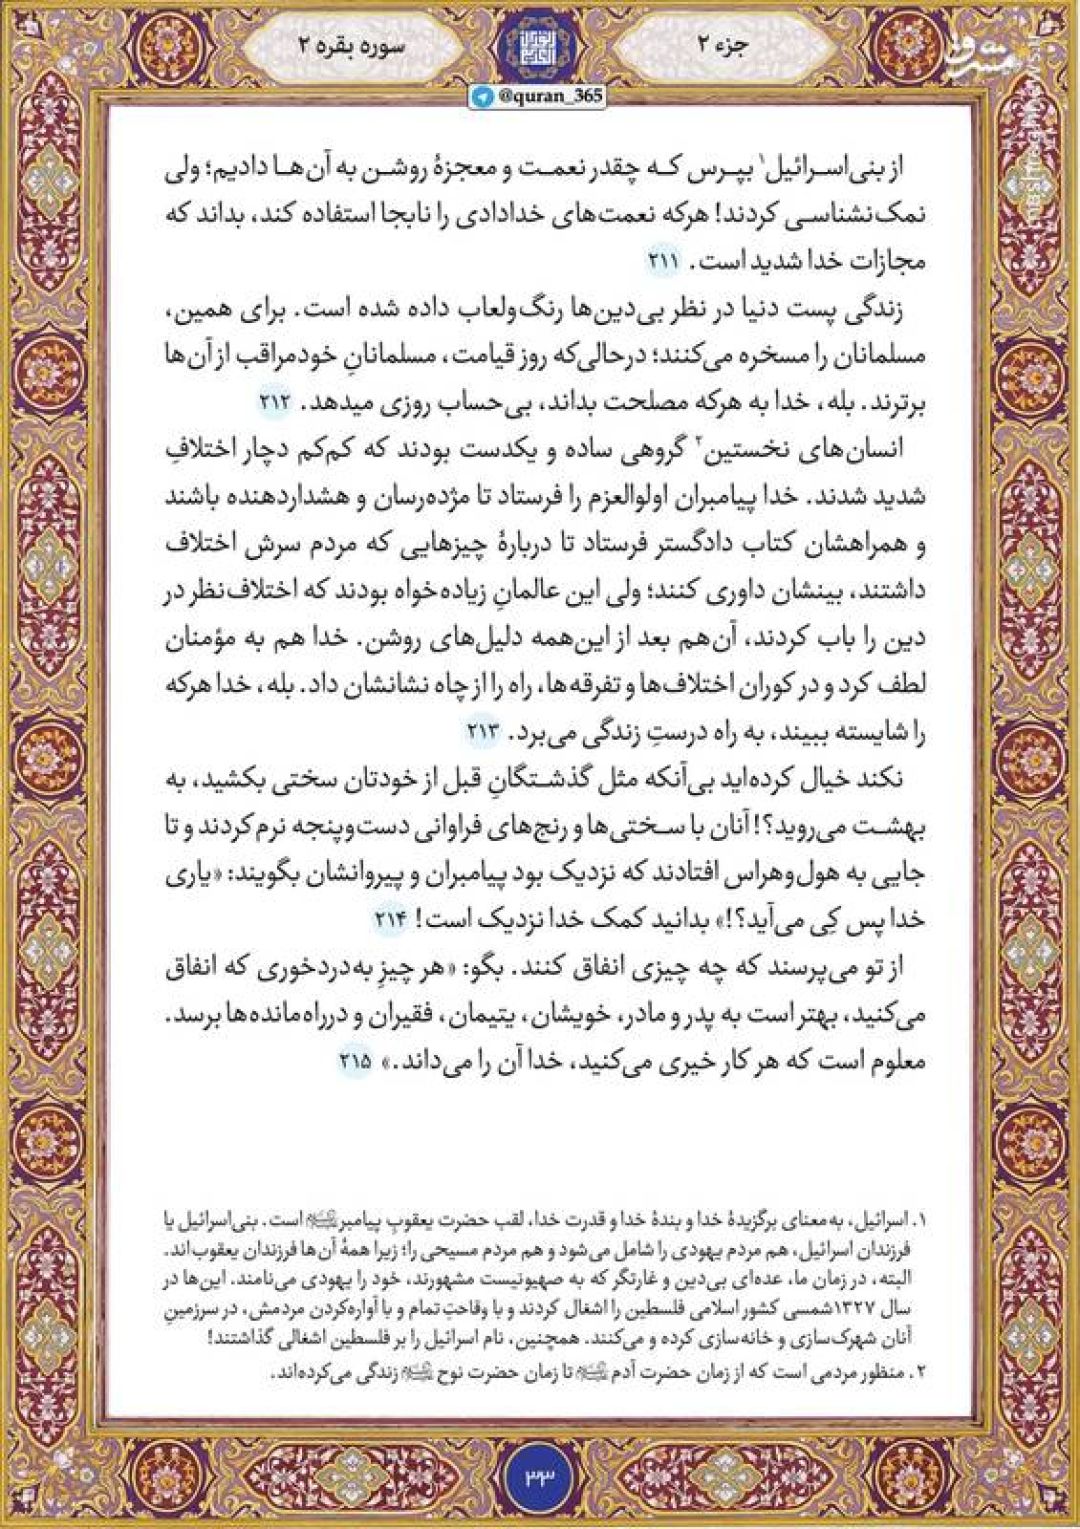 جزء ۲
سوره بقره ۲
@quran_365
از بنی‌اسرائیل۱ بپرس که چقدر نعمت و معجزهٔ روشن به آن‌ها دادیم؛ ولی
نمک‌نشناسی کردند! هرکه نعمت‌های خدادادی را نابجا استفاده کند، بداند که
مجازات خدا شدید است. ۲۱۱
زندگی پست دنیا در نظر بی‌دین‌ها رنگ‌ولعاب داده شده است. برای همین،
مسلمانان را مسخره می‌کنند؛ درحالی‌که روز قیامت، مسلمانانِ خودمراقب از آن‌ها
برترند. بله، خدا به هرکه مصلحت بداند، بی‌حساب روزی میدهد. ۲۱۲
انسان‌های نخستین۲ گروهی ساده و یکدست بودند که کم‌کم دچار اختلافِ
شدید شدند. خدا پیامبران اولوالعزم را فرستاد تا مژده‌رسان و هشداردهنده باشند
و همراهشان کتاب دادگستر فرستاد تا دربارهٔ چیزهایی که مردم سرش اختلاف
داشتند، بینشان داوری کنند؛ ولی این عالمانِ زیاده‌خواه بودند که اختلاف‌نظر در
دین را باب کردند، آن‌هم بعد از این‌همه دلیل‌های روشن. خدا هم به مؤمنان
لطف کرد و در کوران اختلاف‌ها و تفرقه‌ها، راه را از چاه نشانشان داد. بله، خدا هرکه
را شایسته ببیند، به راه درستِ زندگی می‌برد. ۲۱۳
نکند خیال کرده‌اید بی‌آنکه مثل گذشتگانِ قبل از خودتان سختی بکشید، به
بهشت می‌روید؟! آنان با سختی‌ها و رنج‌های فراوانی دست‌وپنجه نرم کردند و تا
جایی به هول‌وهراس افتادند که نزدیک بود پیامبران و پیروانشان بگویند: «یاری
خدا پس کِی می‌آید؟!» بدانید کمک خدا نزدیک است! ۲۱۴
از تو می‌پرسند که چه چیزی انفاق کنند. بگو: «هر چیزِ به‌دردخوری که انفاق
می‌کنید، بهتر است به پدر و مادر، خویشان، یتیمان، فقیران و درراه‌مانده‌ها برسد.
معلوم است که هر کار خیری می‌کنید، خدا آن را می‌داند.» ۲۱۵
۱. اسرائیل، به‌معنای برگزیدهٔ خدا و بندهٔ خدا و قدرت خدا، لقب حضرت یعقوبِ پیامبر است. بنی‌اسرائیل یا
فرزندان اسرائیل، هم مردم یهودی را شامل می‌شود و هم مردم مسیحی را؛ زیرا همهٔ آن‌ها فرزندان یعقوب‌اند.
البته، در زمان ما، عده‌ای بی‌دین و غارتگر که به صهیونیست مشهورند، خود را یهودی می‌نامند. این‌ها در
سال ۱۳۲۷شمسی کشور اسلامی فلسطین را اشغال کردند و با وقاحتِ تمام و با آواره‌کردن مردمش، در سرزمینِ
آنان شهرک‌سازی و خانه‌سازی کرده و می‌کنند. همچنین، نام اسرائیل را بر فلسطین اشغالی گذاشتند!
۲. منظور مردمی است که از زمان حضرت آدم تا زمان حضرت نوح زندگی می‌کرده‌اند.
۳۳